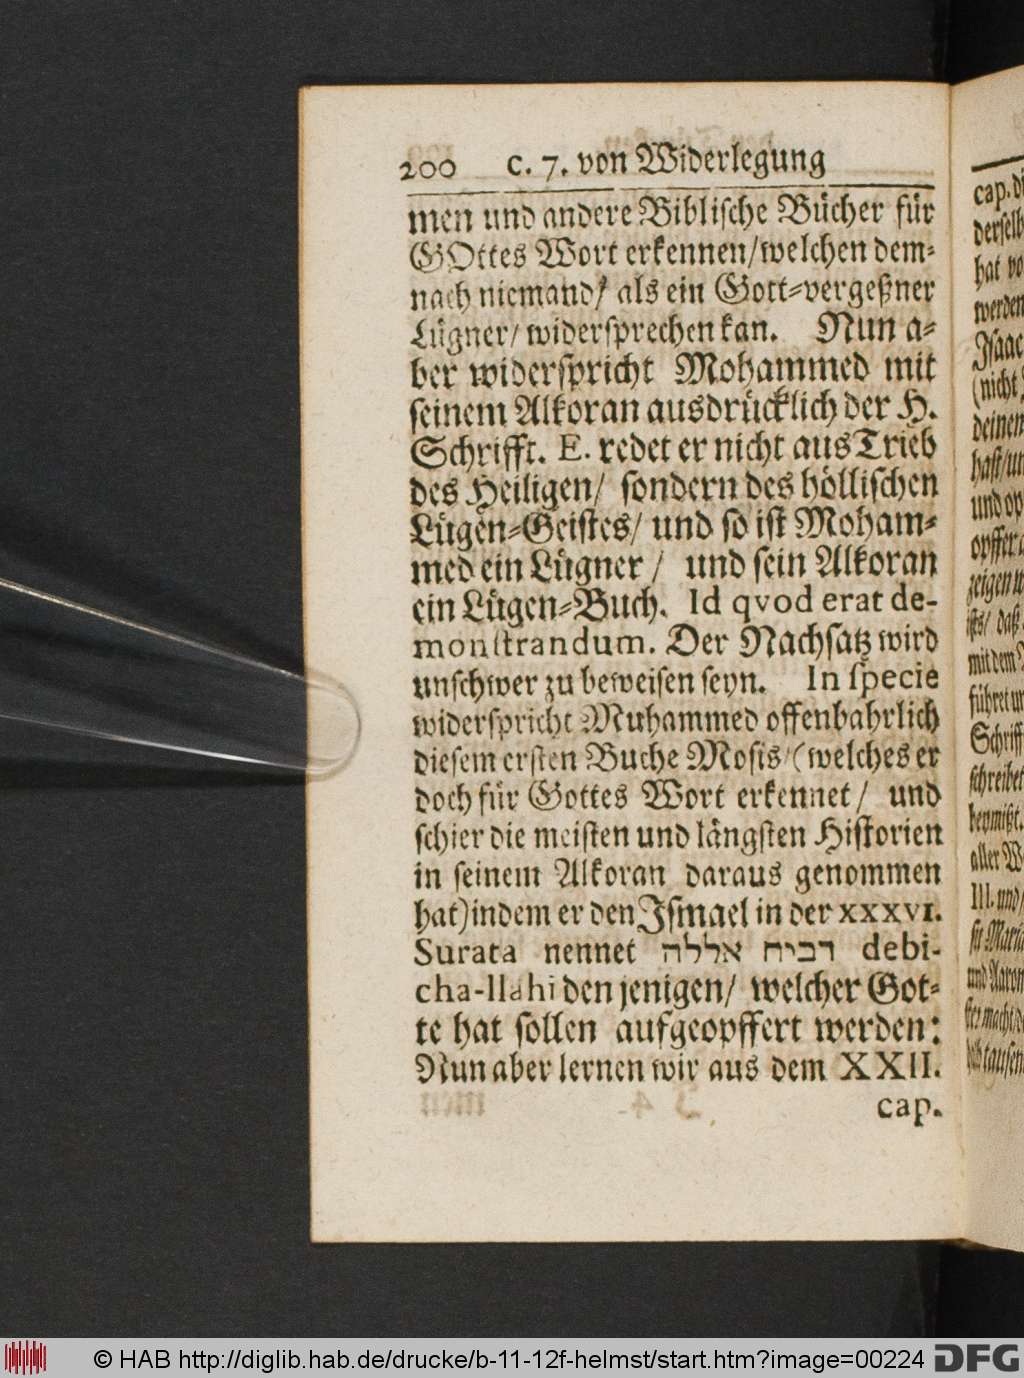 200 c. 7. von Widerlegung
men und andere Biblische Bücher für
GOttes Wort erkennen/welchen dem-
nach niemand/ als ein Gott-vergeßner
Lügner/ widersprechen kan. Nun a-
ber widerspricht Mohammed mit
seinem Alkoran ausdrücklich der H.
Schrifft. E. redet er nicht aus Trieb
des Heiligen/ sondern des höllischen
Lügen-Geistes/ und so ist Moham-
med ein Lügner / und sein Alkoran
ein Lügen-Buch. Id qvod erat de-
monstrandum. Der Nachsatz wird
unschwer zu beweisen seyn. In specie
widerspricht Muhammed offenbahrlich
diesem ersten Buche Mosis/(welches er
doch für Gottes Wort erkennet/ und
schier die meisten und längsten Historien
in seinem Alkoran daraus genommen
hat)indem er den Ismael in der XXXVI.
Surata nennet דביח אללה debi-
cha-llahi den jenigen/ welcher Got-
te hat sollen aufgeopffert werden:
Nun aber lernen wir aus dem XXII.
cap.
cap. di
derselb
hat vo
werden
Isaac
(nicht
deinen
hast/un
und op
opffer
zeigen
ists/ daß
mit dem
führet
Schrifft
schreibet
beymißt.
aller
III. und
sie Maria
und Aaron
macht
tausen
© HAB http://diglib.hab.de/drucke/b-11-12f-helmst/start.htm?image=00224 DFG